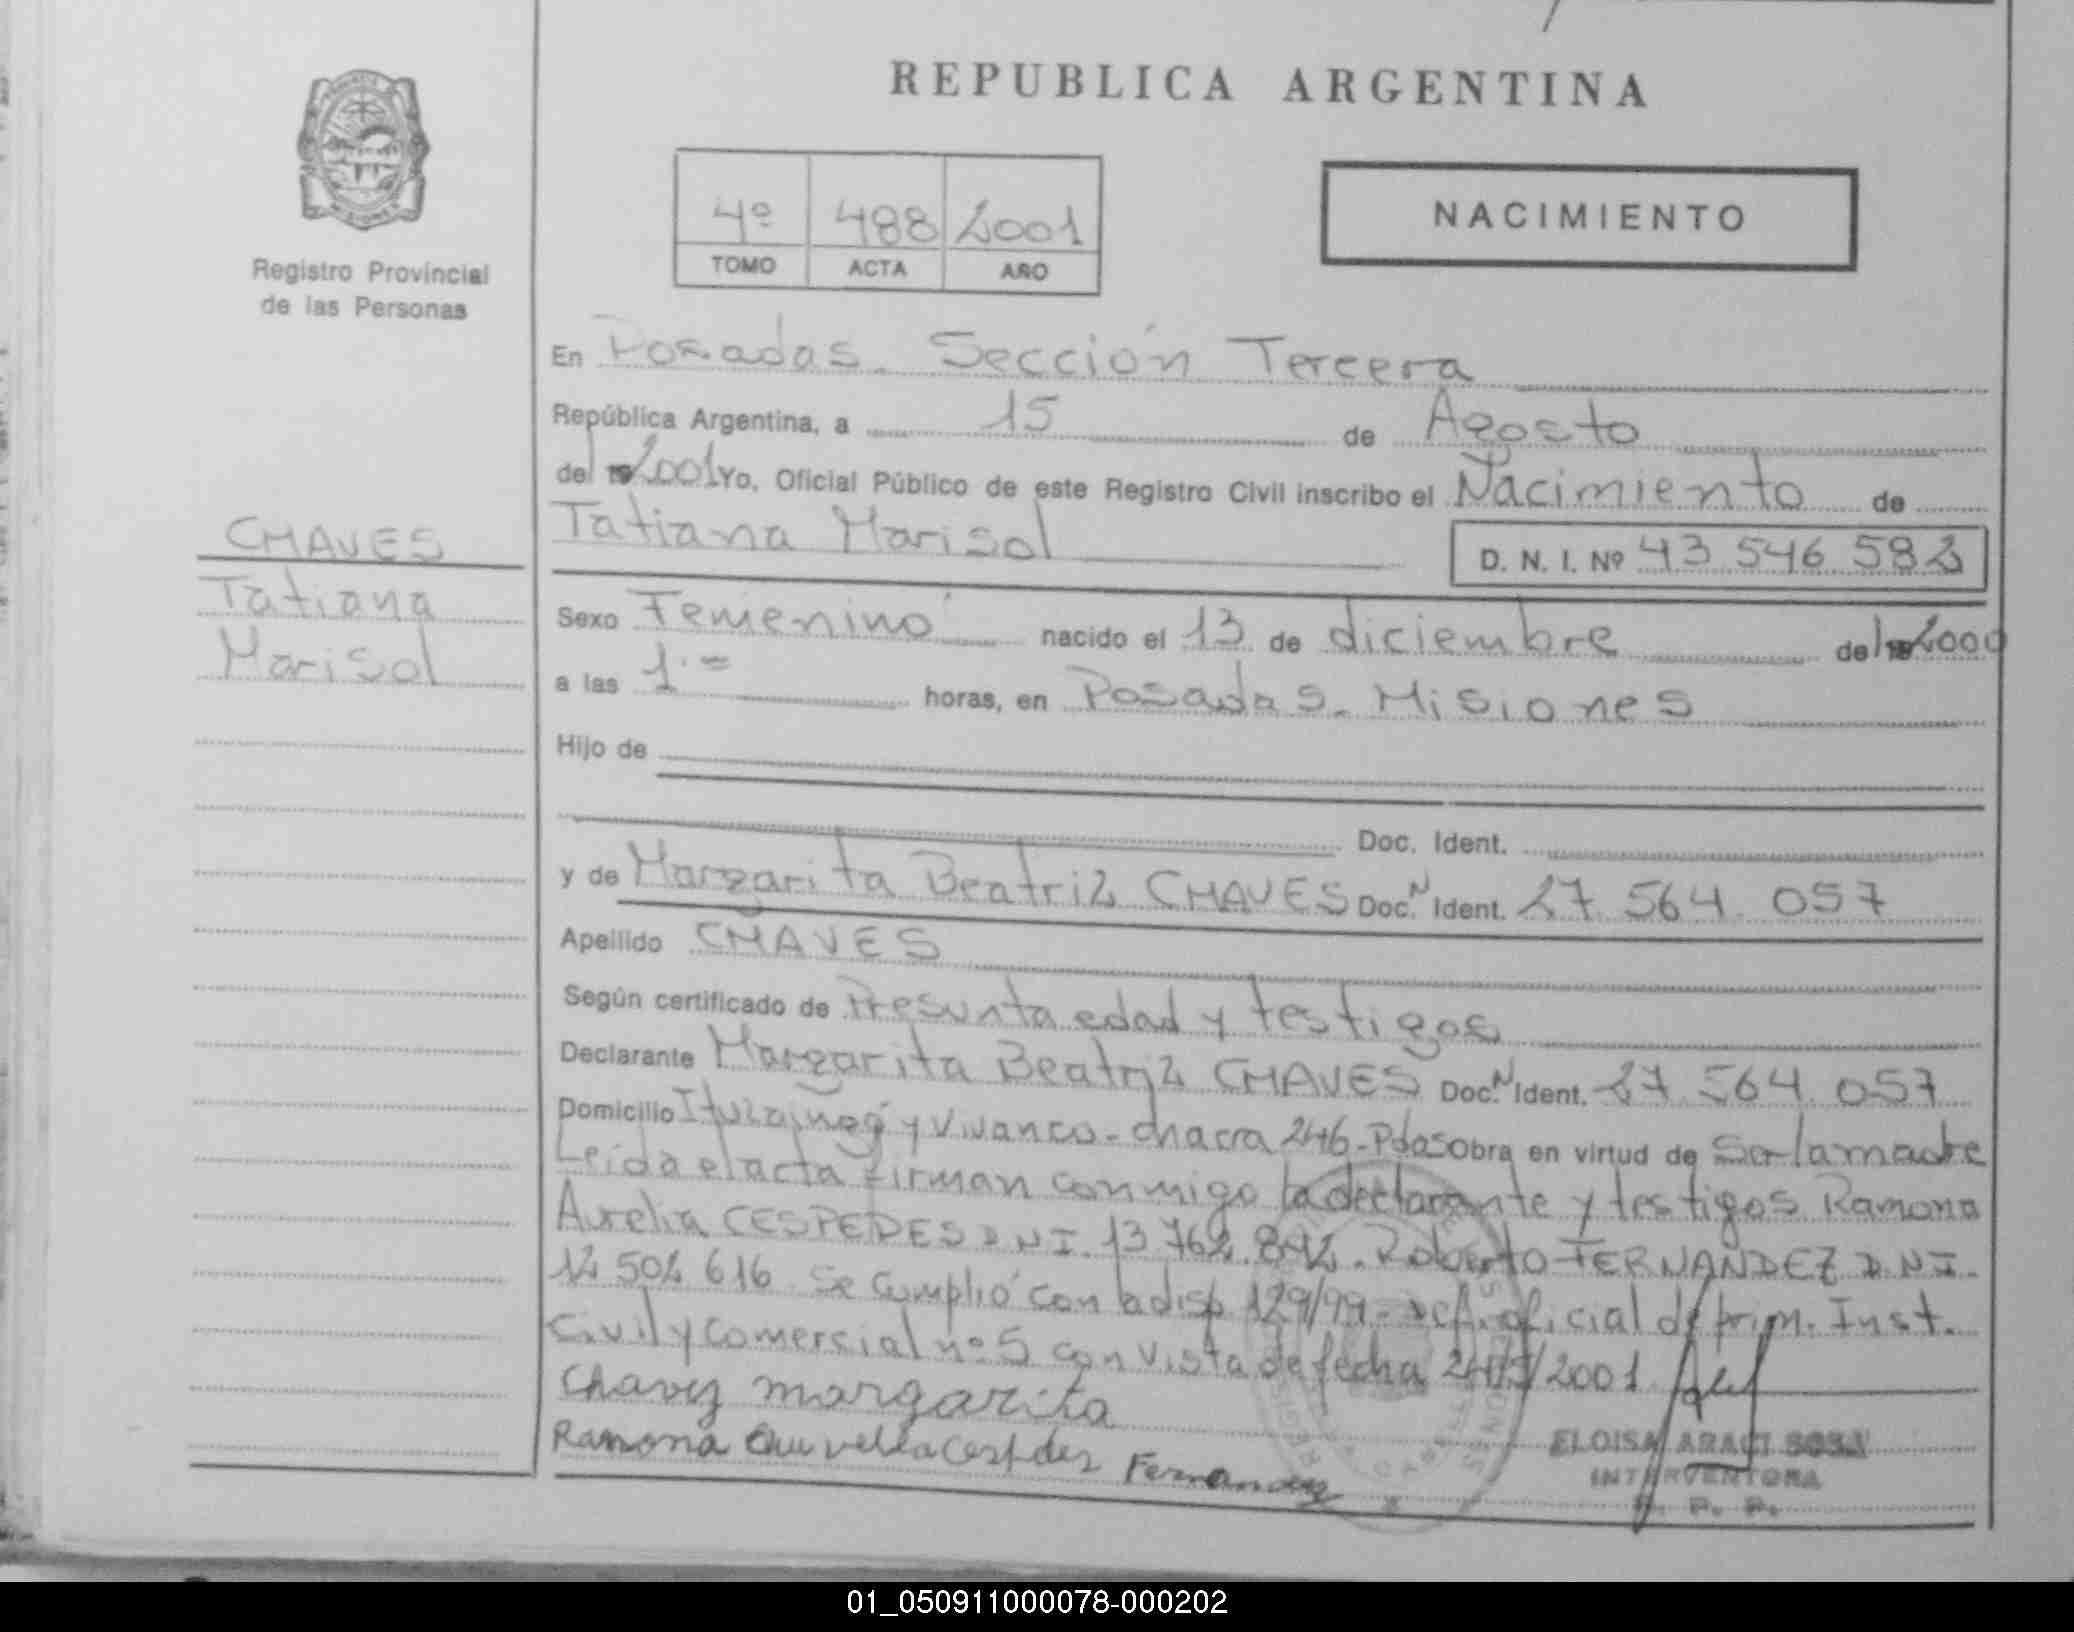 REPUBLICA ARGENTINA
4º 488 2001
TOMO ACTA AÑO
NACIMIENTO
Registro Provincial
de las Personas
En Posadas. Sección Tercera
República Argentina, a 15 de Agosto
del 2001 Yo, Oficial Público de este Registro Civil inscribo el Nacimiento de
Tatiana Marisol
D. N. I. Nº 43.546.582
CHAVES
Tatiana
Marisol
Sexo Femenino nacido el 13 de diciembre del 2000
a las 1.= horas, en Posadas. Misiones
Hijo de
Doc. Ident.
y de Margarita Beatriz CHAVES Doc. N Ident. 27.564.057
Apellido CHAVES
Según certificado de Presunta edad y testigos
Declarante Margarita Beatriz CHAVES Doc. N Ident. 27.564.057
Domicilio y Vivanco - chacra 246 - Pdas Obra en virtud de Ser la madre
Leida el acta firman conmigo la declarante y testigos Ramona
Aurelia CESPEDES D.N.I. 13.762.842. Roberto FERNANDEZ D.N.I.
12.502.616 Se Cumplió con la disp. 129/99 - oficial de prim. Inst.
Civil y Comercial nº 5 con vista de fecha 2001
Chavez margarita
Ramona Fernandez
ELOISA ARACI SOSA
INTERVENTORA
R. P. P.
01_050911000078-000202